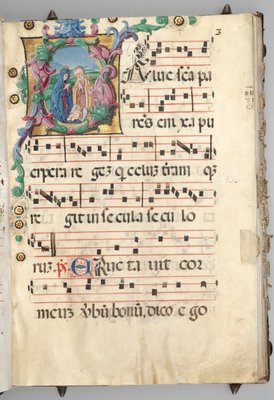 3
SAlue scā pa
rēs eni xa pu
erpera re gez q celuz t̄ram q3
re git in se cula se cu lo
ruz. p̄s. ERuc ta uit cor
meuz v̄bū bonū, dico e go